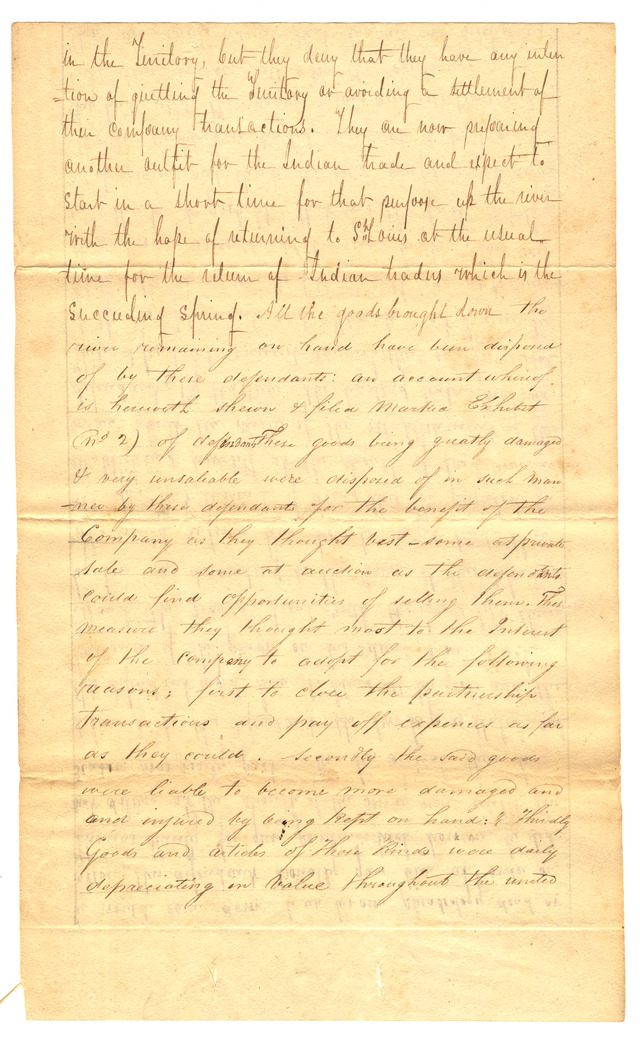 in the Territory, but they deny that they have any inten
=tion of quitting the Territory or avoiding a settlement of
their company transactions. They are now preparing
another outfit for the Indian trade and expect to
start in a short time for that purpose up the river
with the hope of returning to St Louis at the usual
time for the return of Indian traders which is the
Succeeding Spring. All the goods brought down the
river remaining on hand have been disposed
of by these defendants: an account whereof
is herewith shewn & filed Marked Exhibit
(No 2) of defendants These goods being greatly damaged
& very unsaleable were disposed of in such man
=ner by these defendants for the benefit of the
Company as they thought best – some at private
sale and some at auction as the defendants
could find opportunities of selling them. This
measure they thought most to the Interest
of the company to adopt for the following
reasons; first to close the partnership
transactions and pay off expences as far
as they could. Secondly the said goods
were liable to become more damaged and
and injured by being kept on hand: & Thirdly
Goods and articles of those kinds were daily
depreciating in Value throughout the united